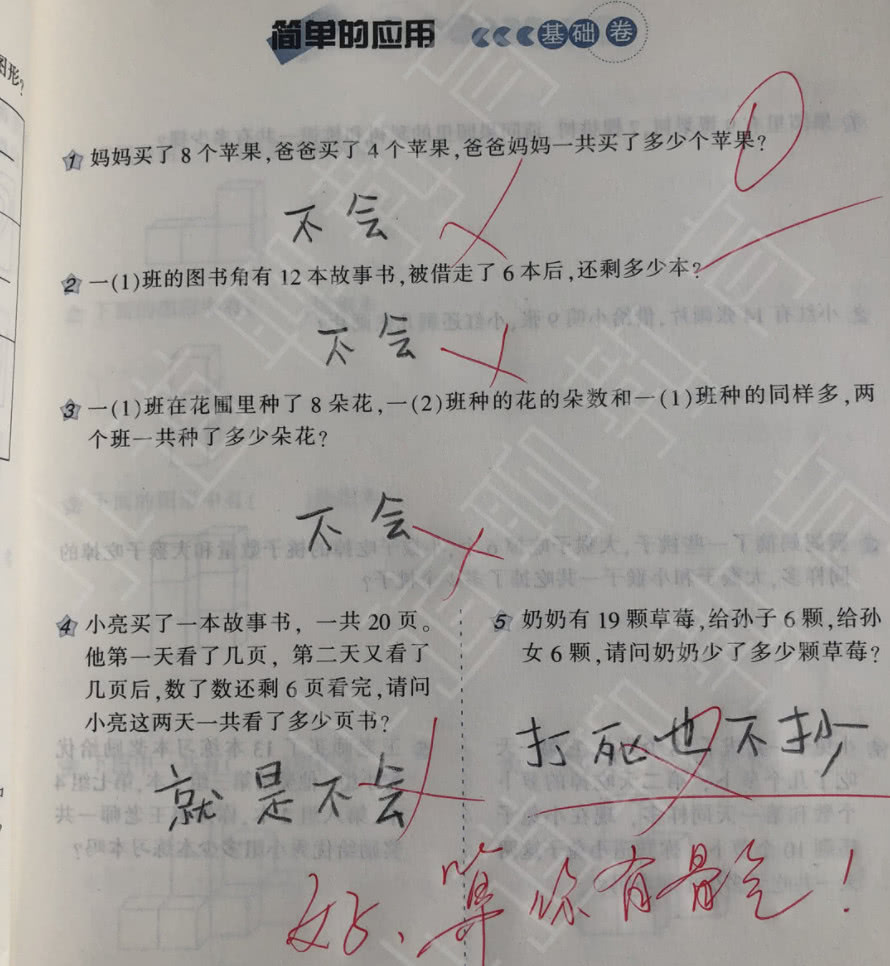 简单的应用 基础卷
1 妈妈买了8个苹果,爸爸买了4个苹果,爸爸妈妈一共买了多少个苹果?
不会
2 一(1)班的图书角有12本故事书,被借走了6本后,还剩多少本?
不会
3 一(1)班在花圃里种了8朵花,一(2)班种的花的朵数和一(1)班种的同样多,两
个班一共种了多少朵花?
不会
4 小亮买了一本故事书,一共20页。
他第一天看了几页,第二天又看了
几页后,数了数还剩6页看完,请问
小亮这两天一共看了多少页书?
就是不会
5 奶奶有19颗草莓,给孙子6颗,给孙
女6颗,请问奶奶少了多少颗草莓?
打死也不抄
好、算你有骨气!